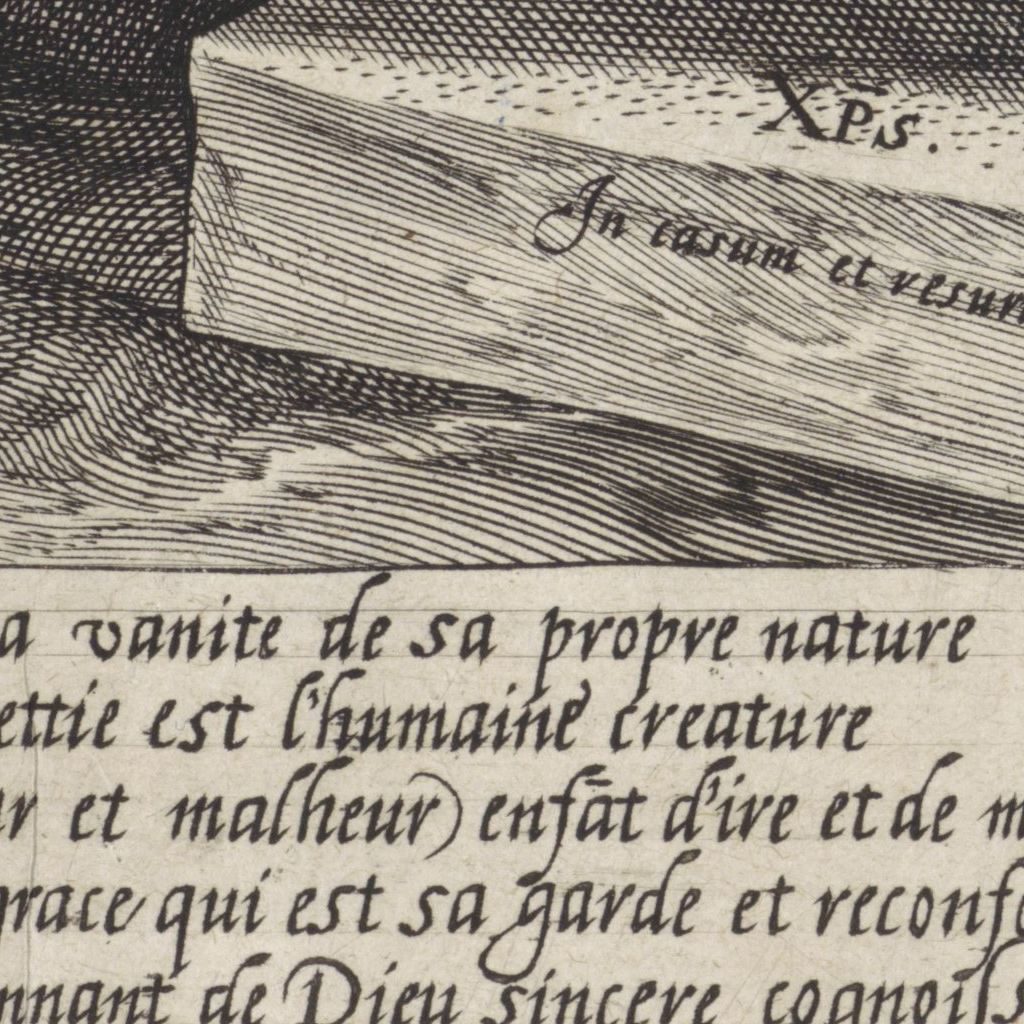 Xp̄s.
In casum et resurr
a vanite de sa propre nature
ettie est l'humaine creature
ur et malheur) enfāt d'ire et de m
grace qui est sa garde et reconfo
nnant de Dieu sincere cognoiss